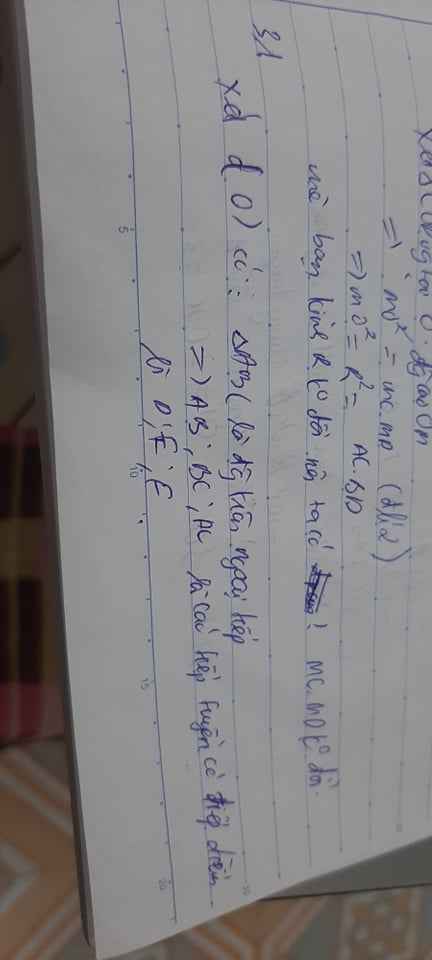 Xét Δ COD vg tại O. đg cao OM
=) mo² = mc.mD (đlí 2)
=) mo² = R² = AC.BD
mà bán kính R kº đổi nên ta có : MC.MD kº đổi.
31
Xét d (O) có : ΔABC là đg tròn ngoại tiếp
=) AB; BC; AC là các tiếp tuyến có tiếp điểm
là D; F; E
5
10
15
20